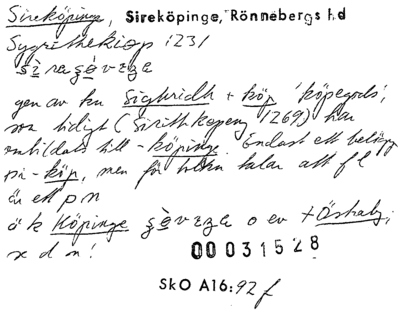 Sireköpinge, Sireköpinge, Rönnebergs hd
Sygrithekiop 1231
gen av kn Sighridh + köp 'köpegods',
som tidigt (Sirithkopeng 1269) har
ombildats till -köpinge. Endast ett belägg
på -köp, men för talar att f l
är ett pn
ö k Köpinge o ev + Öshalj;
se d n!
00031528
SkO A16:92 f